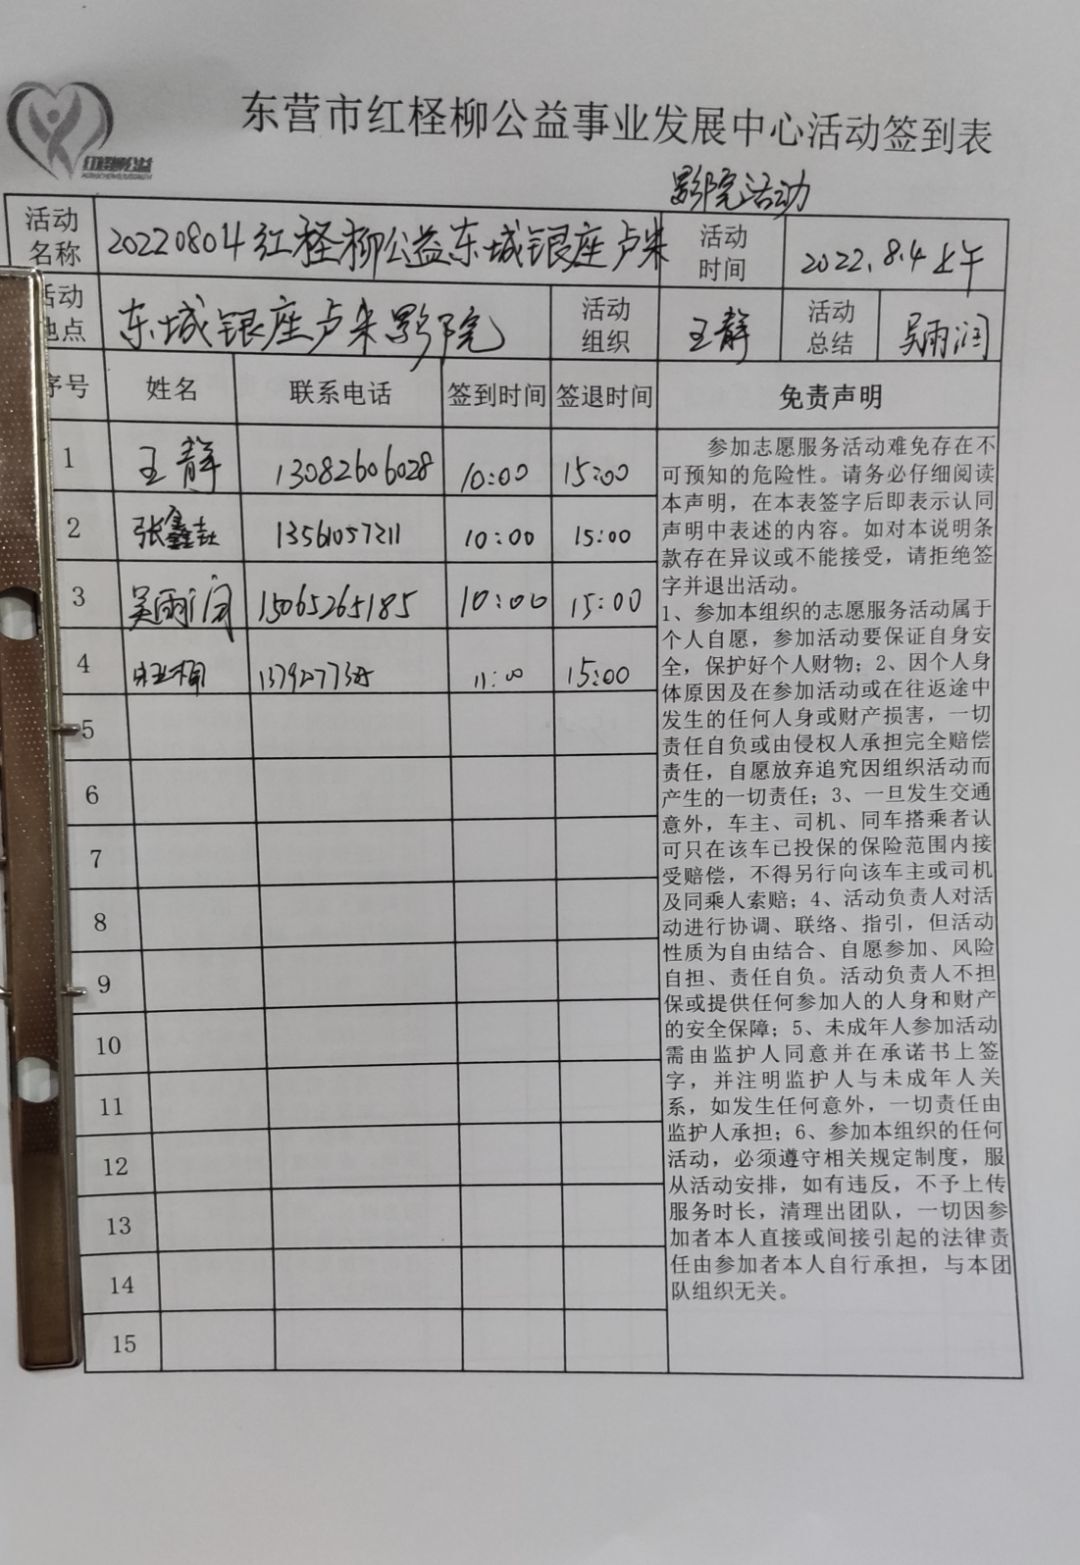 东营市红柽柳公益事业发展中心活动签到表
影院活动
活动名称 20220804红柽柳公益东城银座卢米 活动时间 2022.8.4上午
活动地点 东城银座卢米影院 活动组织 王静 活动总结 吴雨润
序号 姓名 联系电话 签到时间 签退时间 免责声明
1 王静 13082606028 10:00 15:00
2 张鑫 13561057211 10:00 15:00
3 吴雨润 15065265185 10:00 15:00
4 11:00 15:00
5
6
7
8
9
10
11
12
13
14
15
参加志愿服务活动难免存在不
可预知的危险性。请务必仔细阅读
本声明，在本表签字后即表示认同
声明中表述的内容。如对本说明条
款存在异议或不能接受，请拒绝签
字并退出活动。
1、参加本组织的志愿服务活动属于
个人自愿，参加活动要保证自身安
全，保护好个人财物；2、因个人身
体原因及在参加活动或在往返途中
发生的任何人身或财产损害，一切
责任自负或由侵权人承担完全赔偿
责任，自愿放弃追究因组织活动而
产生的一切责任；3、一旦发生交通
意外，车主、司机、同车搭乘者认
可只在该车已投保的保险范围内接
受赔偿，不得另行向该车主或司机
及同乘人索赔；4、活动负责人对活
动进行协调、联络、指引，但活动
性质为自由结合、自愿参加、风险
自担、责任自负。活动负责人不担
保或提供任何参加人的人身和财产
的安全保障；5、未成年人参加活动
需由监护人同意并在承诺书上签
字，并注明监护人与未成年人关
系，如发生任何意外，一切责任由
监护人承担；6、参加本组织的任何
活动，必须遵守相关规定制度，服
从活动安排，如有违反，不予上传
服务时长，清理出团队，一切因参
加者本人直接或间接引起的法律责
任由参加者本人自行承担，与本团
队组织无关。